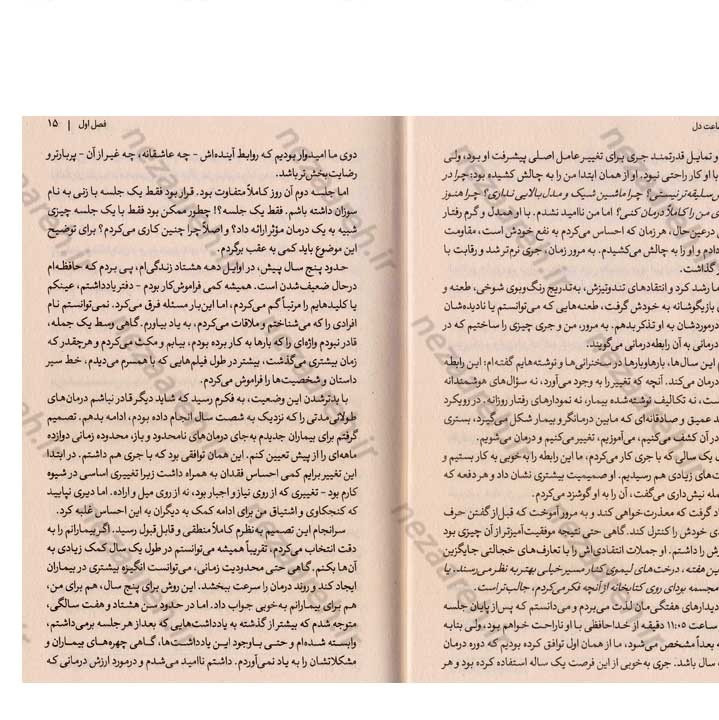 ساعت دل
و تمایل قدرتمند جری برای تغییر عامل اصلی پیشرفت او بود، ولی
با او کار راحتی نبود. او از همان ابتدا من را به چالش کشیده بود: چرا در
سلیقه‌تر نیستی؟ چرا ماشین شیک و مدل بالایی نداری؟ چرا هنوز
من را کاملاً درمان کنی؟ اما من ناامید نشدم. با او همدل و گرم رفتار
درعین‌حال، هر زمان که احساس می‌کردم به نفع خودش است، مقاومت
دادم و او را به چالش می‌کشیدم. به مرور زمان، جری نرم‌تر شد و رقابت با
گذاشت.
ما رشد کرد و انتقادهای تندوتیزش، به‌تدریج رنگ‌وبوی شوخی، طعنه و
بازیگوشانه به خودش گرفت، طعنه‌هایی که می‌توانستم یا نادیده‌شان
درموردشان به او تذکر بدهم. به مرور، من و جری چیزی را ساختیم که در
درمانی به آن رابطه‌درمانی می‌گویند.
این سال‌ها، بارهاوبارها در سخنرانی‌ها و نوشته‌هایم گفته‌ام: این رابطه
درمان می‌کند. آنچه که تغییر را به وجود می‌آورد، نه سؤال‌های هوشمندانه
است، نه تکالیف نوشته‌شده بیمار، نه نمودارهای رفتار روزانه. در رویکرد
عمیق و صادقانه‌ای که مابین درمانگر و بیمار شکل می‌گیرد، بستری
در آن کشف می‌کنیم، می‌آموزیم، تغییر می‌کنیم و درمان می‌شویم.
یک سالی که با جری کار می‌کردم، ما این رابطه را به‌خوبی به کار بستیم و
زیادی هم رسیدیم. او صمیمیت بیشتری نشان داد و هر دفعه که
جمله نیش‌داری می‌گفت، آن را به او گوشزد می‌کردم.
یاد گرفت که معذرت‌خواهی کند و به مرور آموخت که قبل از گفتن حرف
خودش را کنترل کند. گاهی حتی نتیجه موفقیت‌آمیزتر از آن چیزی بود
را داشتم. او جملات انتقادی‌اش را با تعارف‌های خجالتی جایگزین
این هفته، درخت‌های لیموی کنار مسیر خیلی بهتر به نظر می‌رسند. یا
مجسمه بودای روی کتابخانه از آنچه فکر می‌کردم، جالب‌تر است.
دیدارهای هفتگی‌مان لذت می‌بردم و می‌دانستم که پس از پایان جلسه
ساعت ۱۱:۰۵ دقیقه از خداحافظی با او ناراحت خواهم بود، ولی بنا به
بعداً مشخص می‌شود، ما از همان اول توافق کرده بودیم که دوره درمان
سال باشد. جری به‌خوبی از این فرصت یک ساله استفاده کرده بود و هر
فصل اول | ۱۵
دوی ما امیدوار بودیم که روابط آینده‌اش - چه عاشقانه، چه غیر از آن - پربارتر و
رضایت‌بخش‌تر باشد.
اما جلسه دوم آن روز کاملاً متفاوت بود. قرار بود فقط یک جلسه با زنی به نام
سوزان داشته باشم. فقط یک جلسه؟! چطور ممکن بود فقط با یک جلسه چیزی
شبیه به یک درمان مؤثر ارائه داد؟ و اصلاً چرا چنین کاری می‌کردم؟ برای توضیح
این موضوع باید کمی به عقب برگردم.
حدود پنج سال پیش، در اوایل دهه هشتاد زندگی‌ام، پی بردم که حافظه‌ام
درحال ضعیف‌شدن است. همیشه کمی فراموش‌کار بودم - دفتر یادداشتم، عینکم
یا کلیدهایم را مرتباً گم می‌کردم، اما این‌بار مسئله فرق می‌کرد. نمی‌توانستم نام
افرادی را که می‌شناختم و ملاقات می‌کردم، به یاد بیاورم. گاهی وسط یک جمله،
قادر نبودم واژه‌ای را که بارها به کار برده بودم، بیابم و مکث می‌کردم و هرچقدر که
زمان بیشتری می‌گذشت، بیشتر در طول فیلم‌هایی که با همسرم می‌دیدم، خط سیر
داستان و شخصیت‌ها را فراموش می‌کردم.
با بدترشدن این وضعیت، به فکرم رسید که شاید دیگر قادر نباشم درمان‌های
طولانی‌مدتی را که نزدیک به شصت سال انجام داده بودم، ادامه بدهم. تصمیم
گرفتم برای بیماران جدیدم به‌جای درمان‌های نامحدود و باز، محدوده زمانی دوازده
ماهه‌ای را از پیش تعیین کنم. این همان توافقی بود که با جری هم داشتم. در ابتدا
این تغییر برایم کمی احساس فقدان به همراه داشت زیرا تغییری اساسی در شیوه
کارم بود - تغییری که از روی نیاز و اجبار بود، نه از روی میل و اراده. اما دیری نپایید
که کنجکاوی و اشتیاق من برای ادامه کمک به دیگران به این احساس غلبه کرد.
سرانجام این تصمیم به نظرم کاملاً منطقی و قابل‌قبول رسید. اگر بیمارانم را به
دقت انتخاب می‌کردم، تقریباً همیشه می‌توانستم در طول یک سال کمک زیادی به
آن‌ها بکنم. گاهی حتی محدودیت زمانی، می‌توانست انگیزه بیشتری در بیماران
ایجاد کند و روند درمان را سرعت ببخشد. این روش برای پنج سال، هم برای من،
هم برای بیمارانم به‌خوبی جواب داد. اما در حدود سن هشتاد و هفت سالگی،
متوجه شدم که بیشتر از گذشته به یادداشت‌هایی که بعد از هر جلسه برمی‌داشتم،
وابسته شده‌ام و حتی با وجود این یادداشت‌ها، گاهی چهره‌های بیماران و
مشکلاتشان را به یاد نمی‌آوردم. داشتم ناامید می‌شدم و درمورد ارزش درمانی که